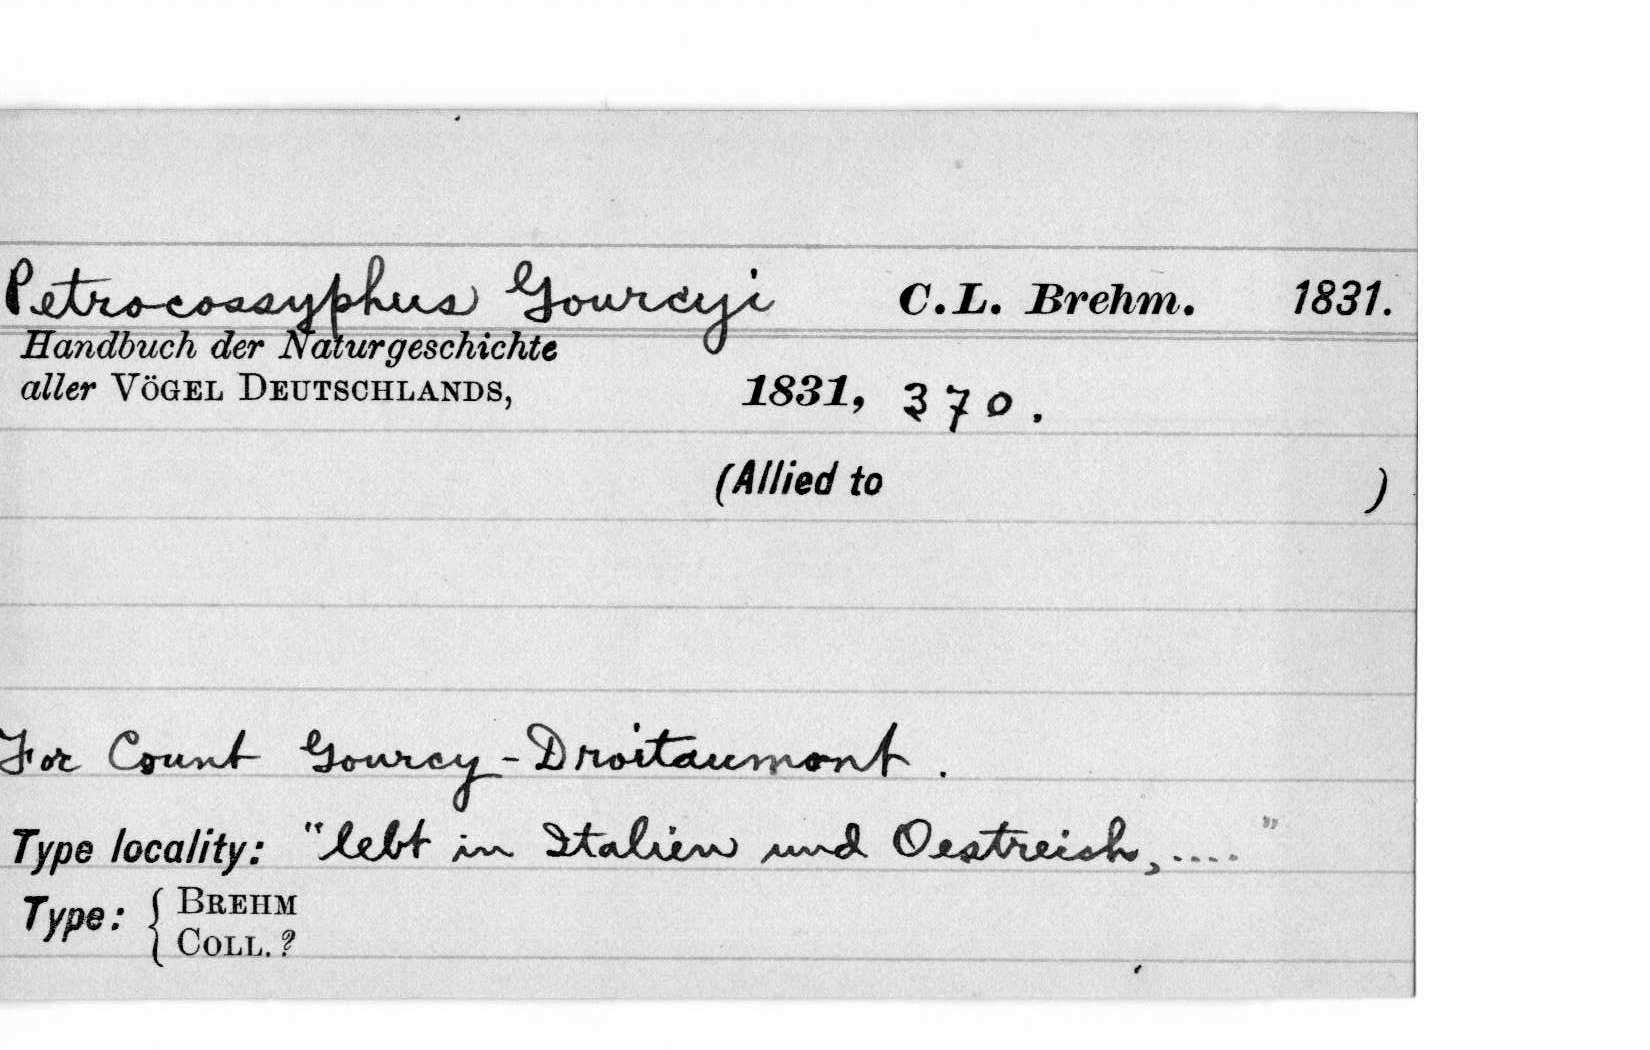 Petrocossyphus Gourcyi C.L. Brehm. 1831.
Handbuch der Naturgeschichte
aller Vögel Deutschlands, 1831, 370.
(Allied to )
For Count Gourcy-Droitaumont.
Type locality: "lebt in Italien und Oestreich, ...."
Type: { Brehm
Coll. ?